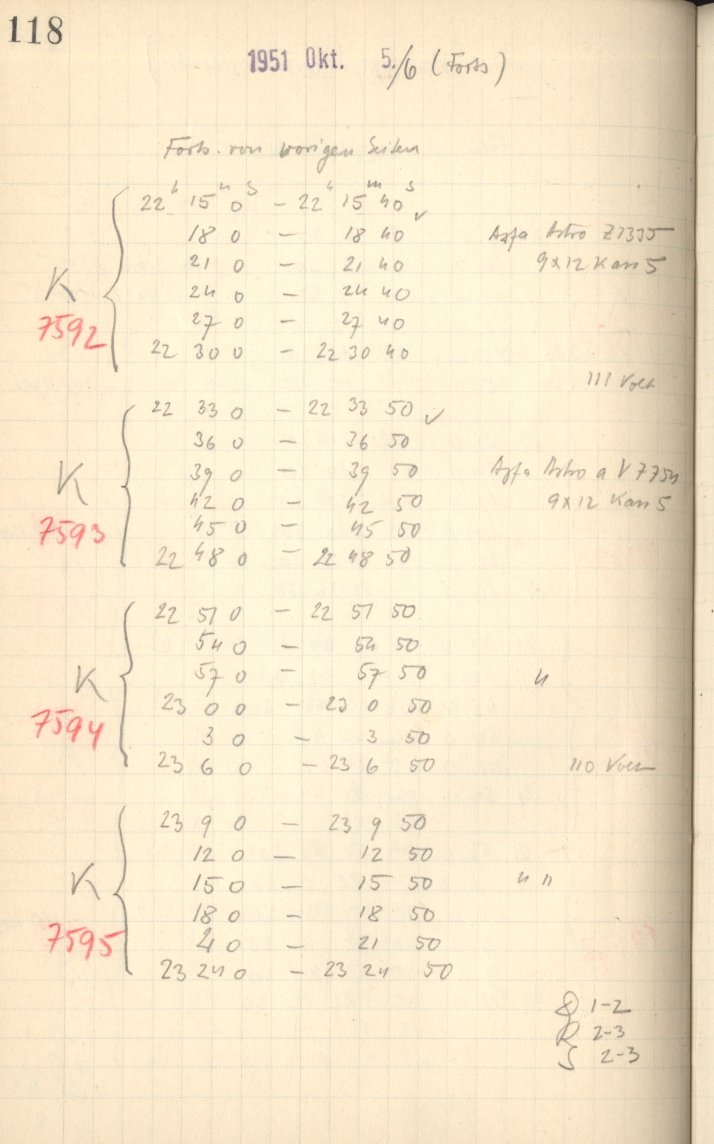 118
1951 Okt. 5./6 (Forts)
Forts. von vorigen Seiten
22h 15m 0s - 22h 15m 40s ✓
18 0 - 18 40 Agfa Astro Z1335
21 0 - 21 40 9x12 Kass 5
K 24 0 - 24 40
7592 27 0 - 27 40
22 30 0 - 22 30 40
111 Volt
22 33 0 - 22 33 50 ✓
36 0 - 36 50
K 39 0 - 39 50 Agfa Astro a V 7754
42 0 - 42 50 9x12 Kass 5
7593 45 0 - 45 50
22 48 0 - 22 48 50
22 51 0 - 22 51 50
54 0 - 54 50
K 57 0 - 57 50 "
7594 23 0 0 - 23 0 50
3 0 - 3 50
23 6 0 - 23 6 50 110 Volt
23 9 0 - 23 9 50
12 0 - 12 50
K 15 0 - 15 50 " "
18 0 - 18 50
7595 21 0 - 21 50
23 24 0 - 23 24 50
1-2
R 2-3
S 2-3